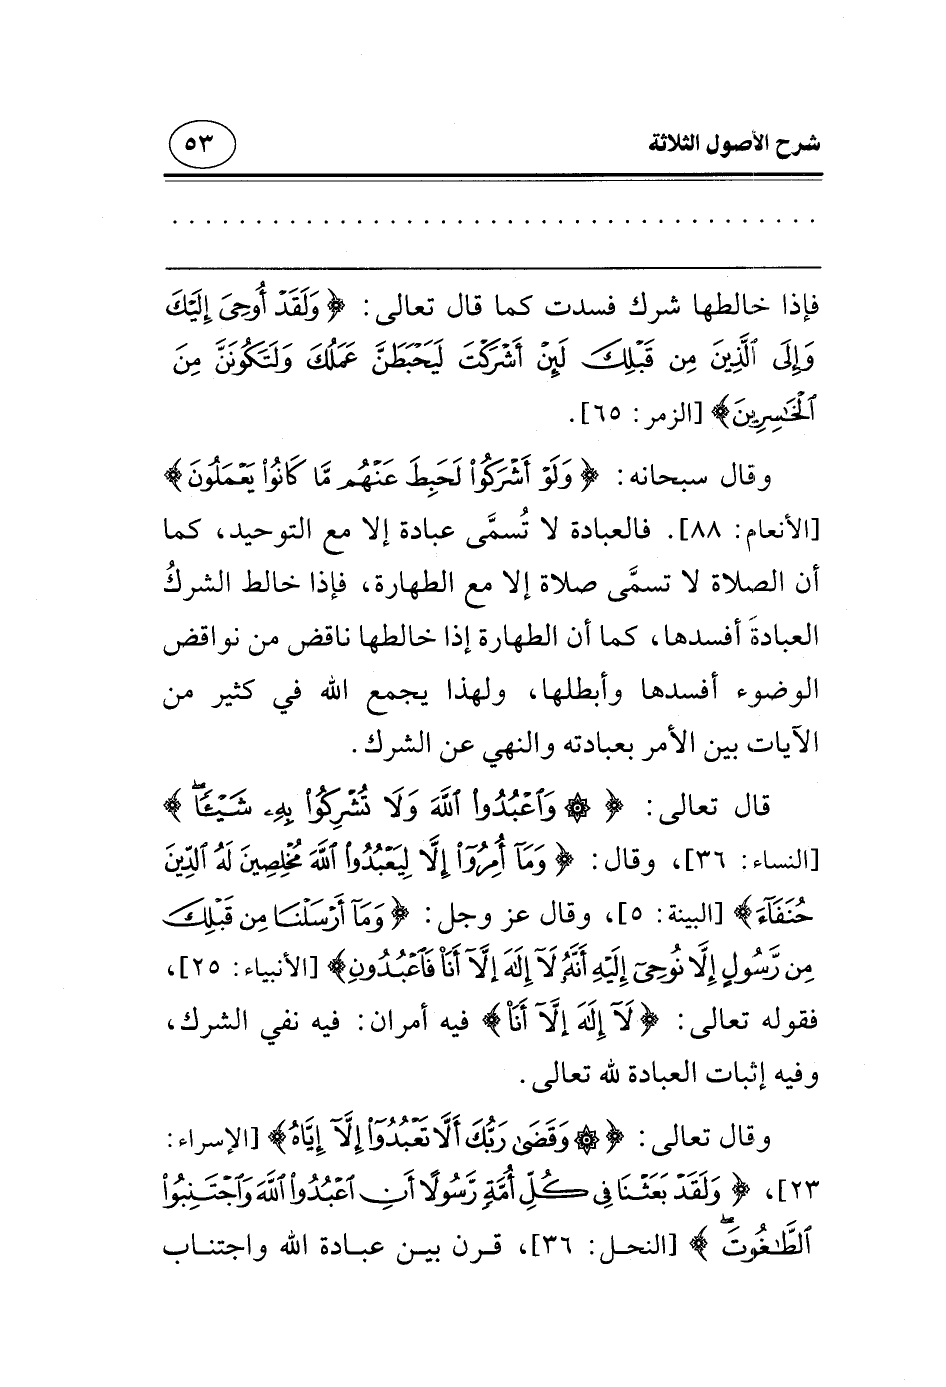 شرح الأصول الثلاثة
٥٣
. . . . . . . . . . . . . . . . . . . . . . . . . . . . . . . . . . . . . . .
فإذا خالطها شرك فسدت كما قال تعالى: ﴿وَلَقَدْ أُوحِىَ إِلَيْكَ
وَإِلَى ٱلَّذِينَ مِن قَبْلِكَ لَئِنْ أَشْرَكْتَ لَيَحْبَطَنَّ عَمَلُكَ وَلَتَكُونَنَّ مِنَ
ٱلْخَٰسِرِينَ﴾ [الزمر: ٦٥].
وقال سبحانه: ﴿وَلَوْ أَشْرَكُوا۟ لَحَبِطَ عَنْهُم مَّا كَانُوا۟ يَعْمَلُونَ﴾
[الأنعام: ٨٨]. فالعبادة لا تُسمَّى عبادة إلا مع التوحيد، كما
أن الصلاة لا تسمَّى صلاة إلا مع الطهارة، فإذا خالط الشركُ
العبادةَ أفسدها، كما أن الطهارة إذا خالطها ناقض من نواقض
الوضوء أفسدها وأبطلها، ولهذا يجمع الله في كثير من
الآيات بين الأمر بعبادته والنهي عن الشرك.
قال تعالى: ﴿۞ وَٱعْبُدُوا۟ ٱللَّهَ وَلَا تُشْرِكُوا۟ بِهِۦ شَيْـًٔا ۖ﴾
[النساء: ٣٦]، وقال: ﴿وَمَآ أُمِرُوٓا۟ إِلَّا لِيَعْبُدُوا۟ ٱللَّهَ مُخْلِصِينَ لَهُ ٱلدِّينَ
حُنَفَآءَ﴾ [البينة: ٥]، وقال عز وجل: ﴿وَمَآ أَرْسَلْنَا مِن قَبْلِكَ
مِن رَّسُولٍ إِلَّا نُوحِىٓ إِلَيْهِ أَنَّهُۥ لَآ إِلَٰهَ إِلَّآ أَنَا۠ فَٱعْبُدُونِ﴾ [الأنبياء: ٢٥]،
فقوله تعالى: ﴿لَآ إِلَٰهَ إِلَّآ أَنَا۠﴾ فيه أمران: فيه نفي الشرك،
وفيه إثبات العبادة لله تعالى.
وقال تعالى: ﴿۞ وَقَضَىٰ رَبُّكَ أَلَّا تَعْبُدُوٓا۟ إِلَّآ إِيَّاهُ﴾ [الإسراء:
٢٣]، ﴿وَلَقَدْ بَعَثْنَا فِى كُلِّ أُمَّةٍ رَّسُولًا أَنِ ٱعْبُدُوا۟ ٱللَّهَ وَٱجْتَنِبُوا۟
ٱلطَّٰغُوتَ ۖ﴾ [النحل: ٣٦]، قرن بين عبادة الله واجتناب